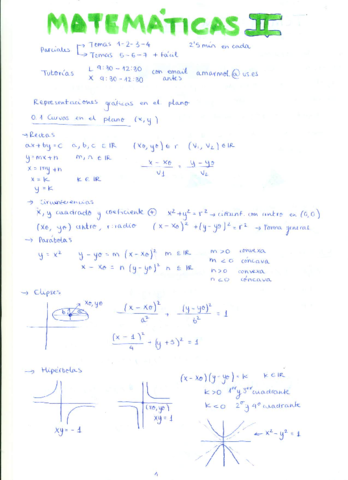 MATEMÁTICAS II
Parciales → Temas 1-2-3-4 2'5 min en cada
→ Temas 5-6-7 + fácil
Tutorías L 9:30 - 12:30 con email
X 9:30 - 12:30 antes
Representaciones gráficas en el plano
0.1 Curvas en el plano (x,y)
→ Rectas
ax + by = c a, b, c ∈ ℝ (x0, y0) ∈ r (v1, v2) ∈ ℝ
y = mx + n m, n ∈ ℝ (x - x0)/v1 = (y - y0)/v2
x = my + n
x = k k ∈ ℝ
y = k
→ Circunferencias
x, y cuadrado y coeficiente ⊕ x² + y² = r² → circunf con centro en (0,0)
(x0, y0) centro, r radio (x - x0)² + (y - y0)² = r² → Forma general
→ Parábolas
y = x² y - y0 = m (x - x0)² m ∈ ℝ m > 0 convexa
m < 0 cóncava
x - x0 = n (y - y0)² n ∈ ℝ n > 0 convexa
n < 0 cóncava
→ Elipses
x0, y0
b a
(x - x0)²/a² + (y - y0)²/b² = 1
(x - 1)²/4 + (y + 3)² = 1
→ Hipérbolas
(x - x0)(y - y0) = k k ∈ ℝ
k > 0 1er y 3er cuadrante
k < 0 2º y 4º cuadrante
(x0, y0)
xy = -1
xy = 1
x² - y² = 1